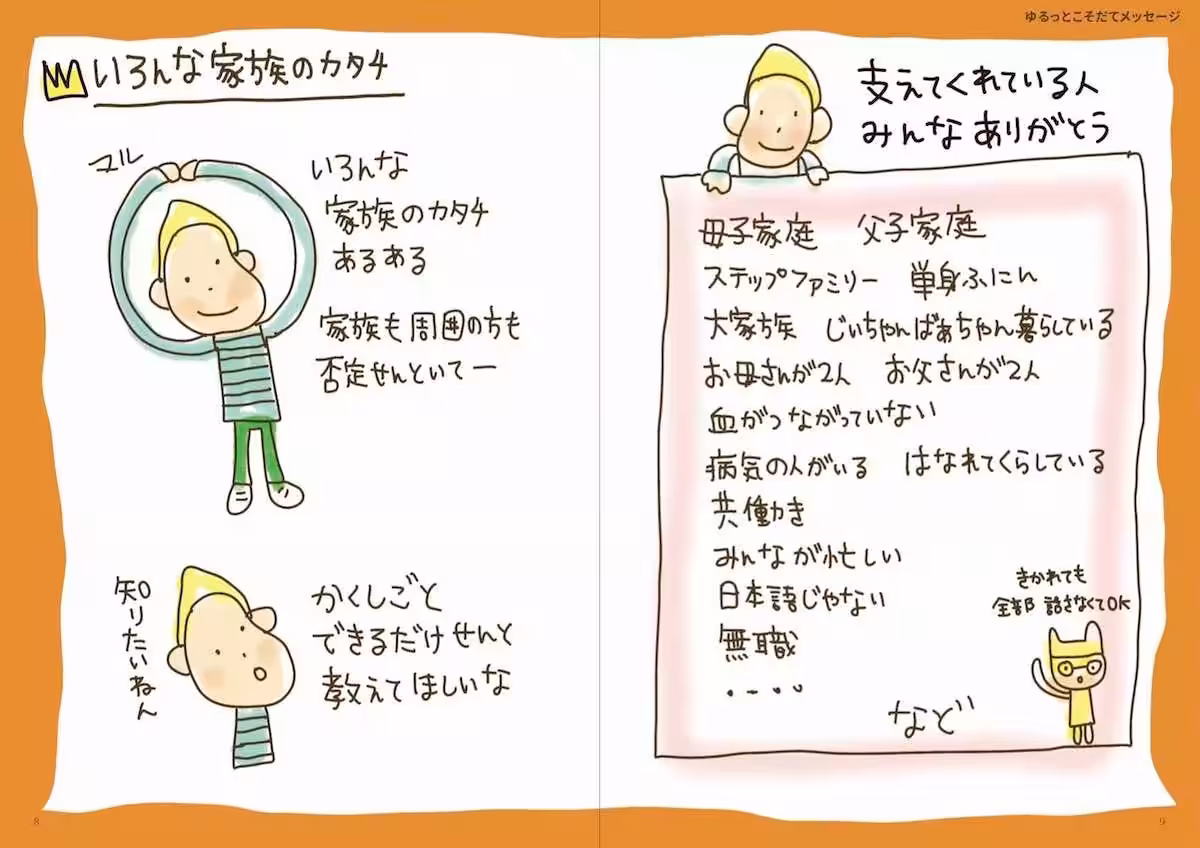 ゆるっとこそだてメッセージ
いろんな家族のカタチ
マル
いろんな
家族のカタチ
あるある
家族も周囲の方も
否定せんといてー
知りたいねん
かくしごと
できるだけせんと
教えてほしいな
8
支えてくれている人
みんなありがとう
母子家庭 父子家庭
ステップファミリー 単身ふにん
大家族 じいちゃんばあちゃん暮らしている
お母さんが2人 お父さんが2人
血がつながっていない
病気の人がいる はなれてくらしている
共働き
みんなが忙しい
日本語じゃない
無職
・・・・
など
きかれても
全部話さなくてOK
9